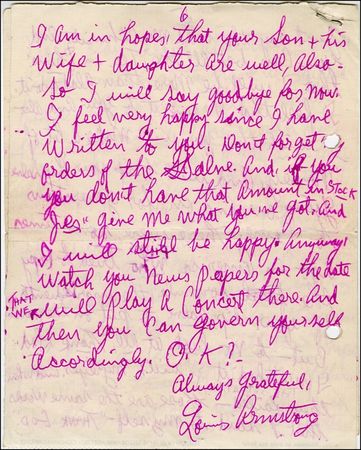 6
I am in hopes, that your Son + his
Wife + daughter are well, Also-
So I will say goodbye for now.
I feel very happy since I have
Written to you. Don't forget my
orders of the Salve. And, if you
you don't have that Amount in Stock
Jes" give me what you've got. And
I will still be happy. Anyway,
Watch you News papers for the date
THAT WE will play A Concert there. And
Then you can govern yourself
Accordingly. O.K?-
Always grateful,
Louis Armstrong